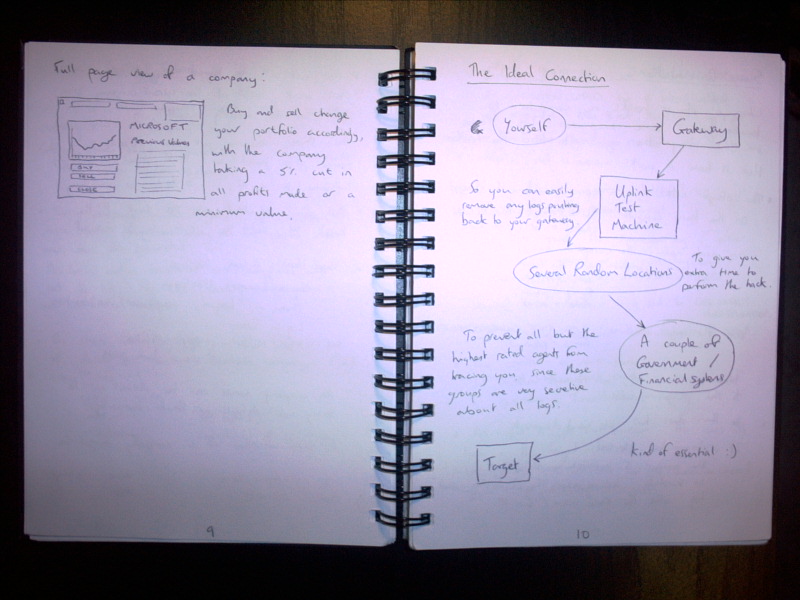 Full page view of a company:
MICROSOFT
Previous Values
BUY
SELL
Buy and sell change
your portfolio accordingly,
with the company
taking a 5% cut in
all profits made or a
minimum value.
9
The Ideal Connection
Yourself
Gateway
So you can easily
remove any logs pointing
back to your gateway.
Uplink
Test
Machine
Several Random Locations
To give you
extra time to
perform the hack.
To prevent all but the
highest rated agents from
tracing you, since these
groups are very secretive
about all logs.
A couple of
Government /
Financial systems
Target
kind of essential :)
10